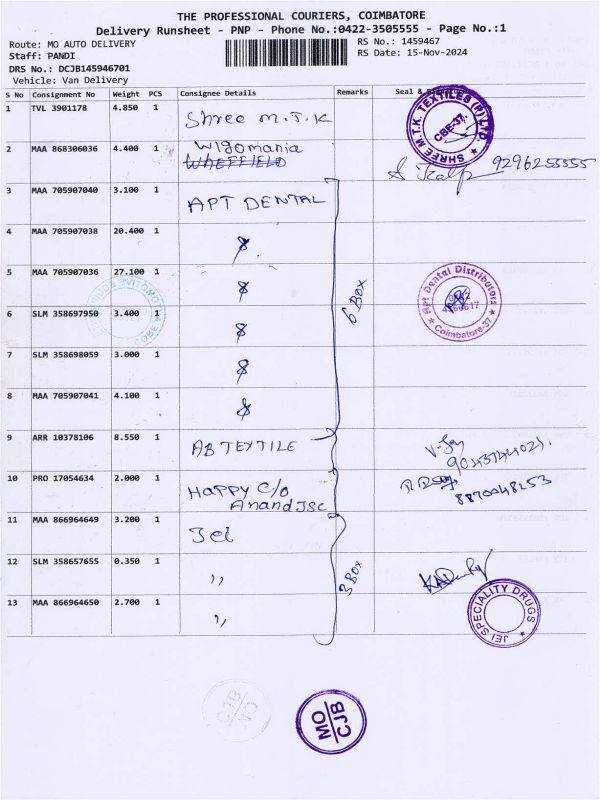 THE PROFESSIONAL COURIERS, COIMBATORE
Delivery Runsheet - PNP - Phone No.:0422-3505555 - Page No.:1
Route: MO AUTO DELIVERY
Staff: PANDI
DRS No.: DCJB145946701
Vehicle: Van Delivery
RS No.: 1459467
RS Date: 15-Nov-2024
S No Consignment No Weight PCS Consignee Details Remarks Seal &
1 TVL 3901178 4.850 1 Shree M.T.K
SHREE M.T.K. TEXTILES (P) LTD.
CBE-37.
2 MAA 868306036 4.400 1 Wigomania
WHEFFIELD
9296255555
3 MAA 705907040 3.100 1 APT DENTAL
4 MAA 705907038 20.400 1
5 MAA 705907036 27.100 1
6 Box
Apt Dental Distributors
Coimbatore-37
6 SLM 358697950 3.400 1
7 SLM 358698059 3.000 1
8 MAA 705907041 4.100 1
9 ARR 10378106 8.550 1 AB TEXTILE
10 PRO 17054634 2.000 1 HAPPY C/o
Anand JSC
8870048253
11 MAA 866964649 3.200 1 Jei
12 SLM 358657655 0.350 1 ,,
3 Box
13 MAA 866964650 2.700 1 ,,
JEI SPECIALITY DRUGS
MO
CJB
CJB
MO